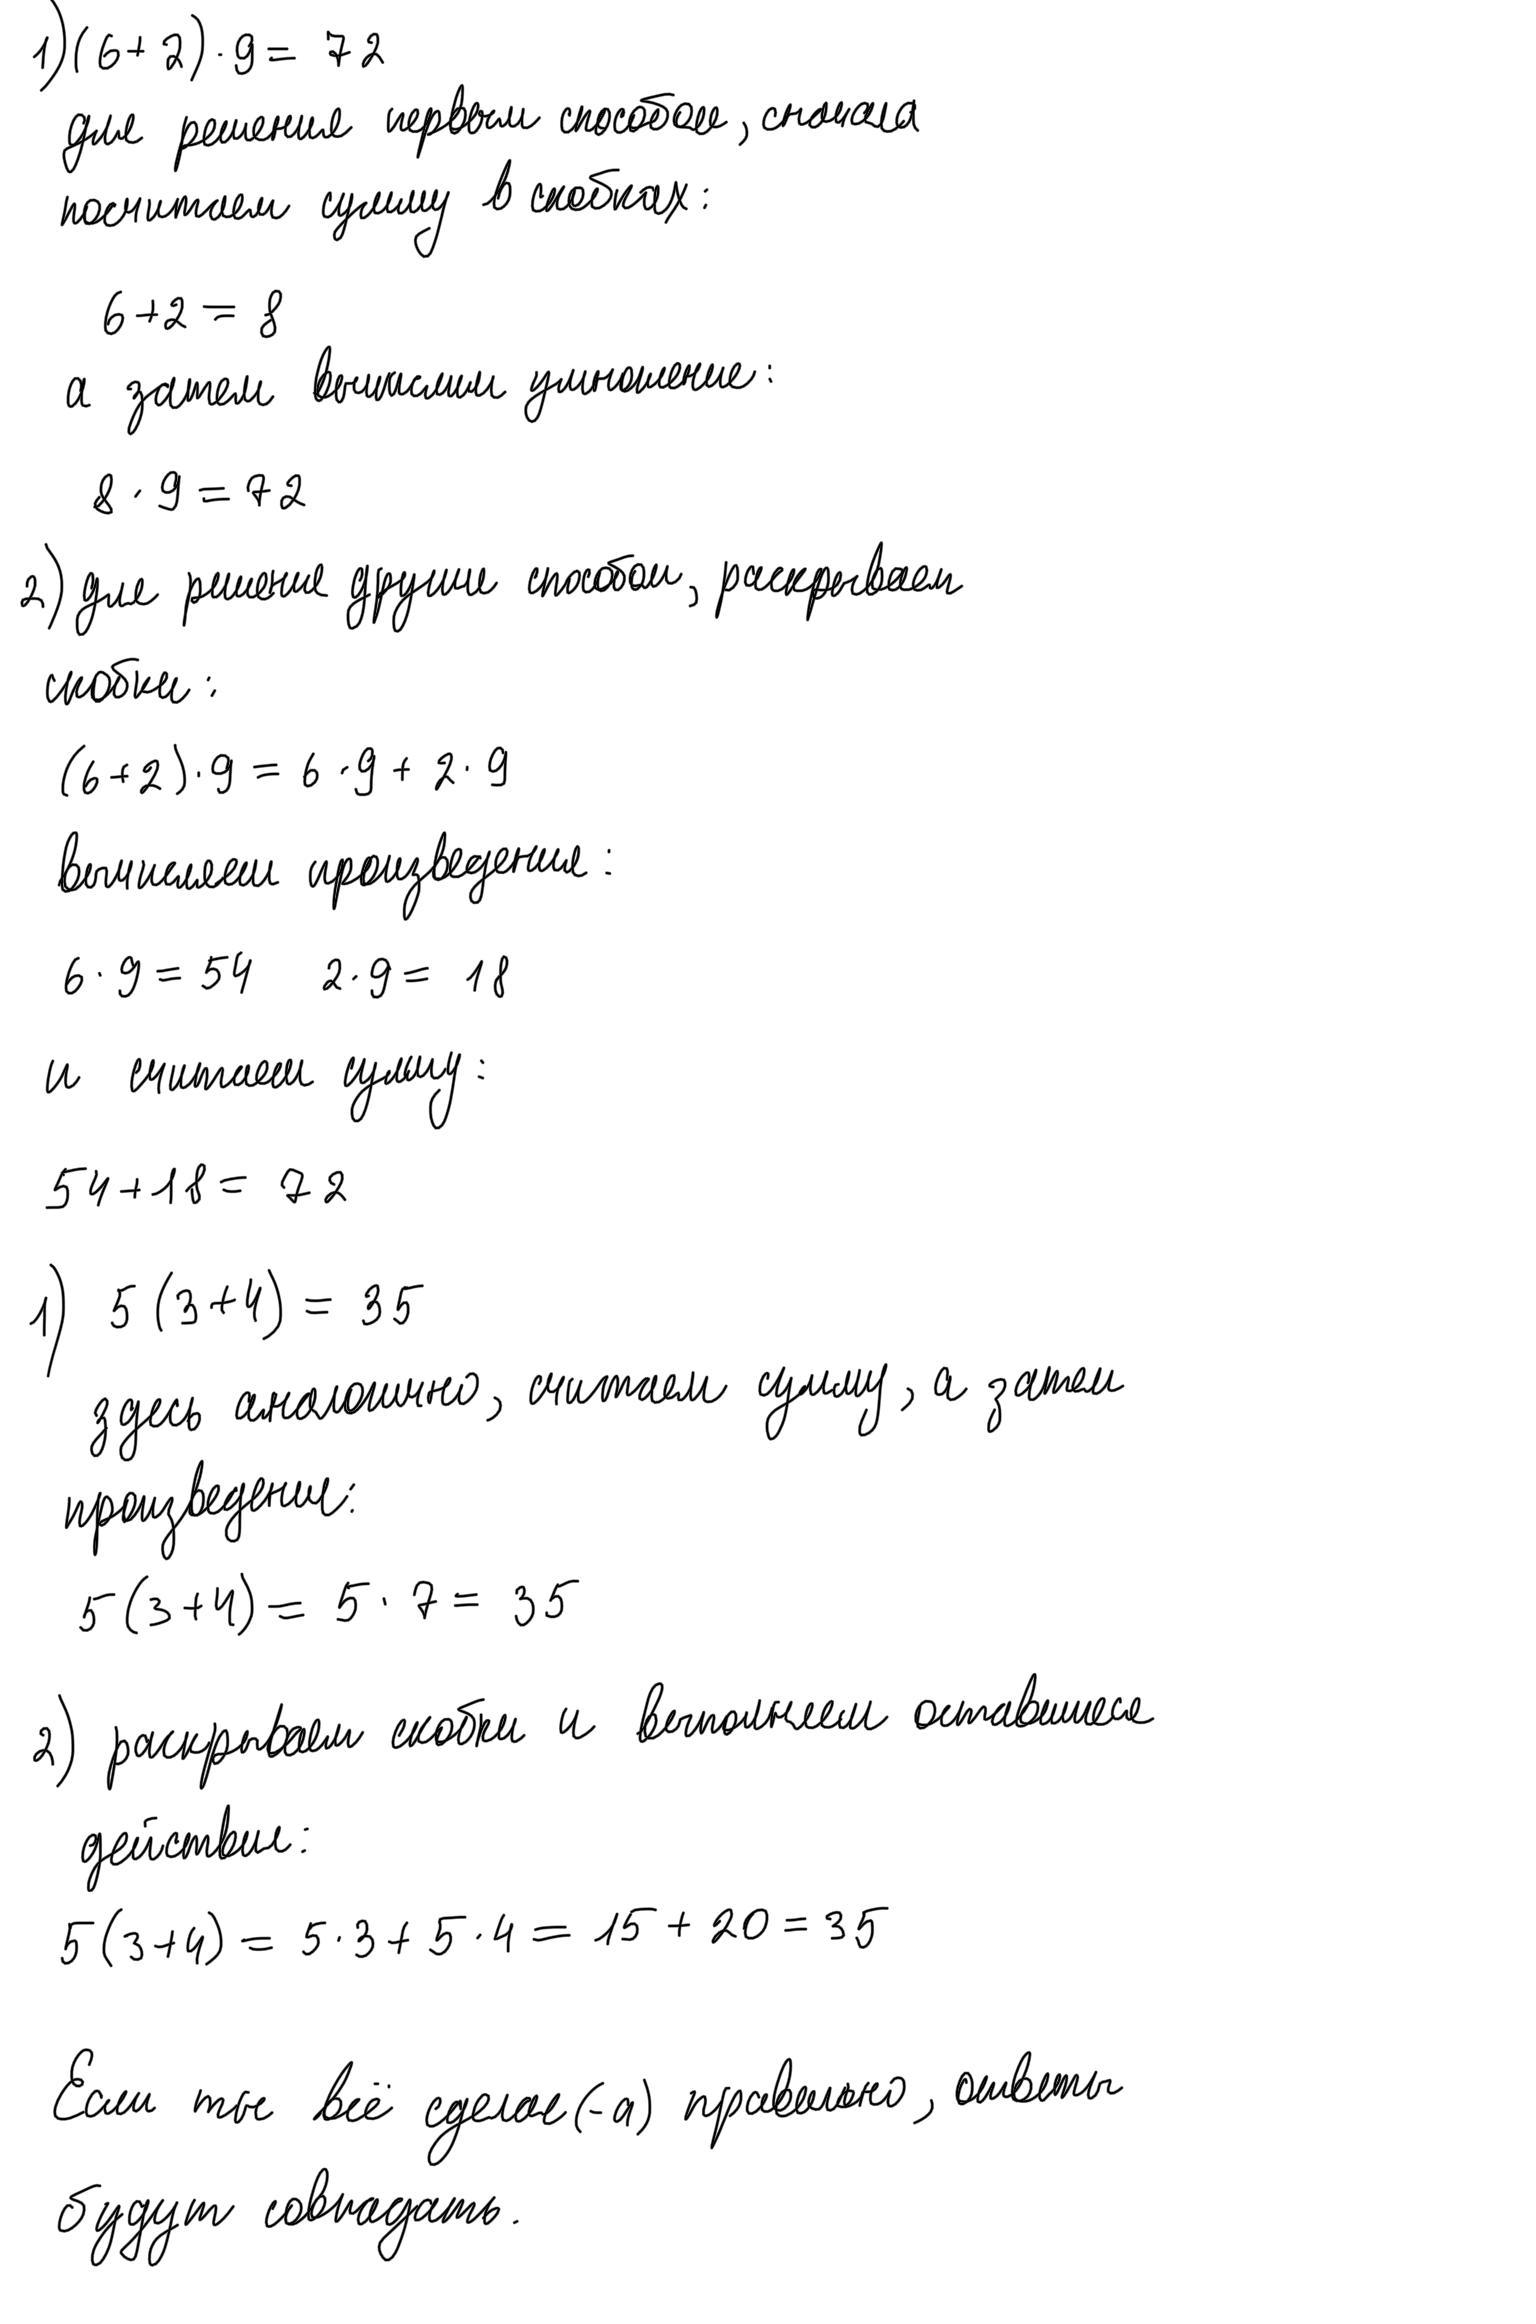 1) (6+2)·9 = 72
для решения первым способом, сначала
посчитаем сумму в скобках:
6+2 = 8
а затем вычислим умножение:
8·9 = 72
2) для решения другим способом, раскрываем
скобки:
(6+2)·9 = 6·9 + 2·9
вычисляем произведения:
6·9 = 54 2·9 = 18
и считаем сумму:
54+18 = 72
1) 5(3+4) = 35
здесь аналогично, считаем сумму, а затем
произведение:
5(3+4) = 5·7 = 35
2) раскрываем скобки и выполняем оставшиеся
действия:
5(3+4) = 5·3 + 5·4 = 15 + 20 = 35
Если ты всё сделал(-а) правильно, ответы
будут совпадать.